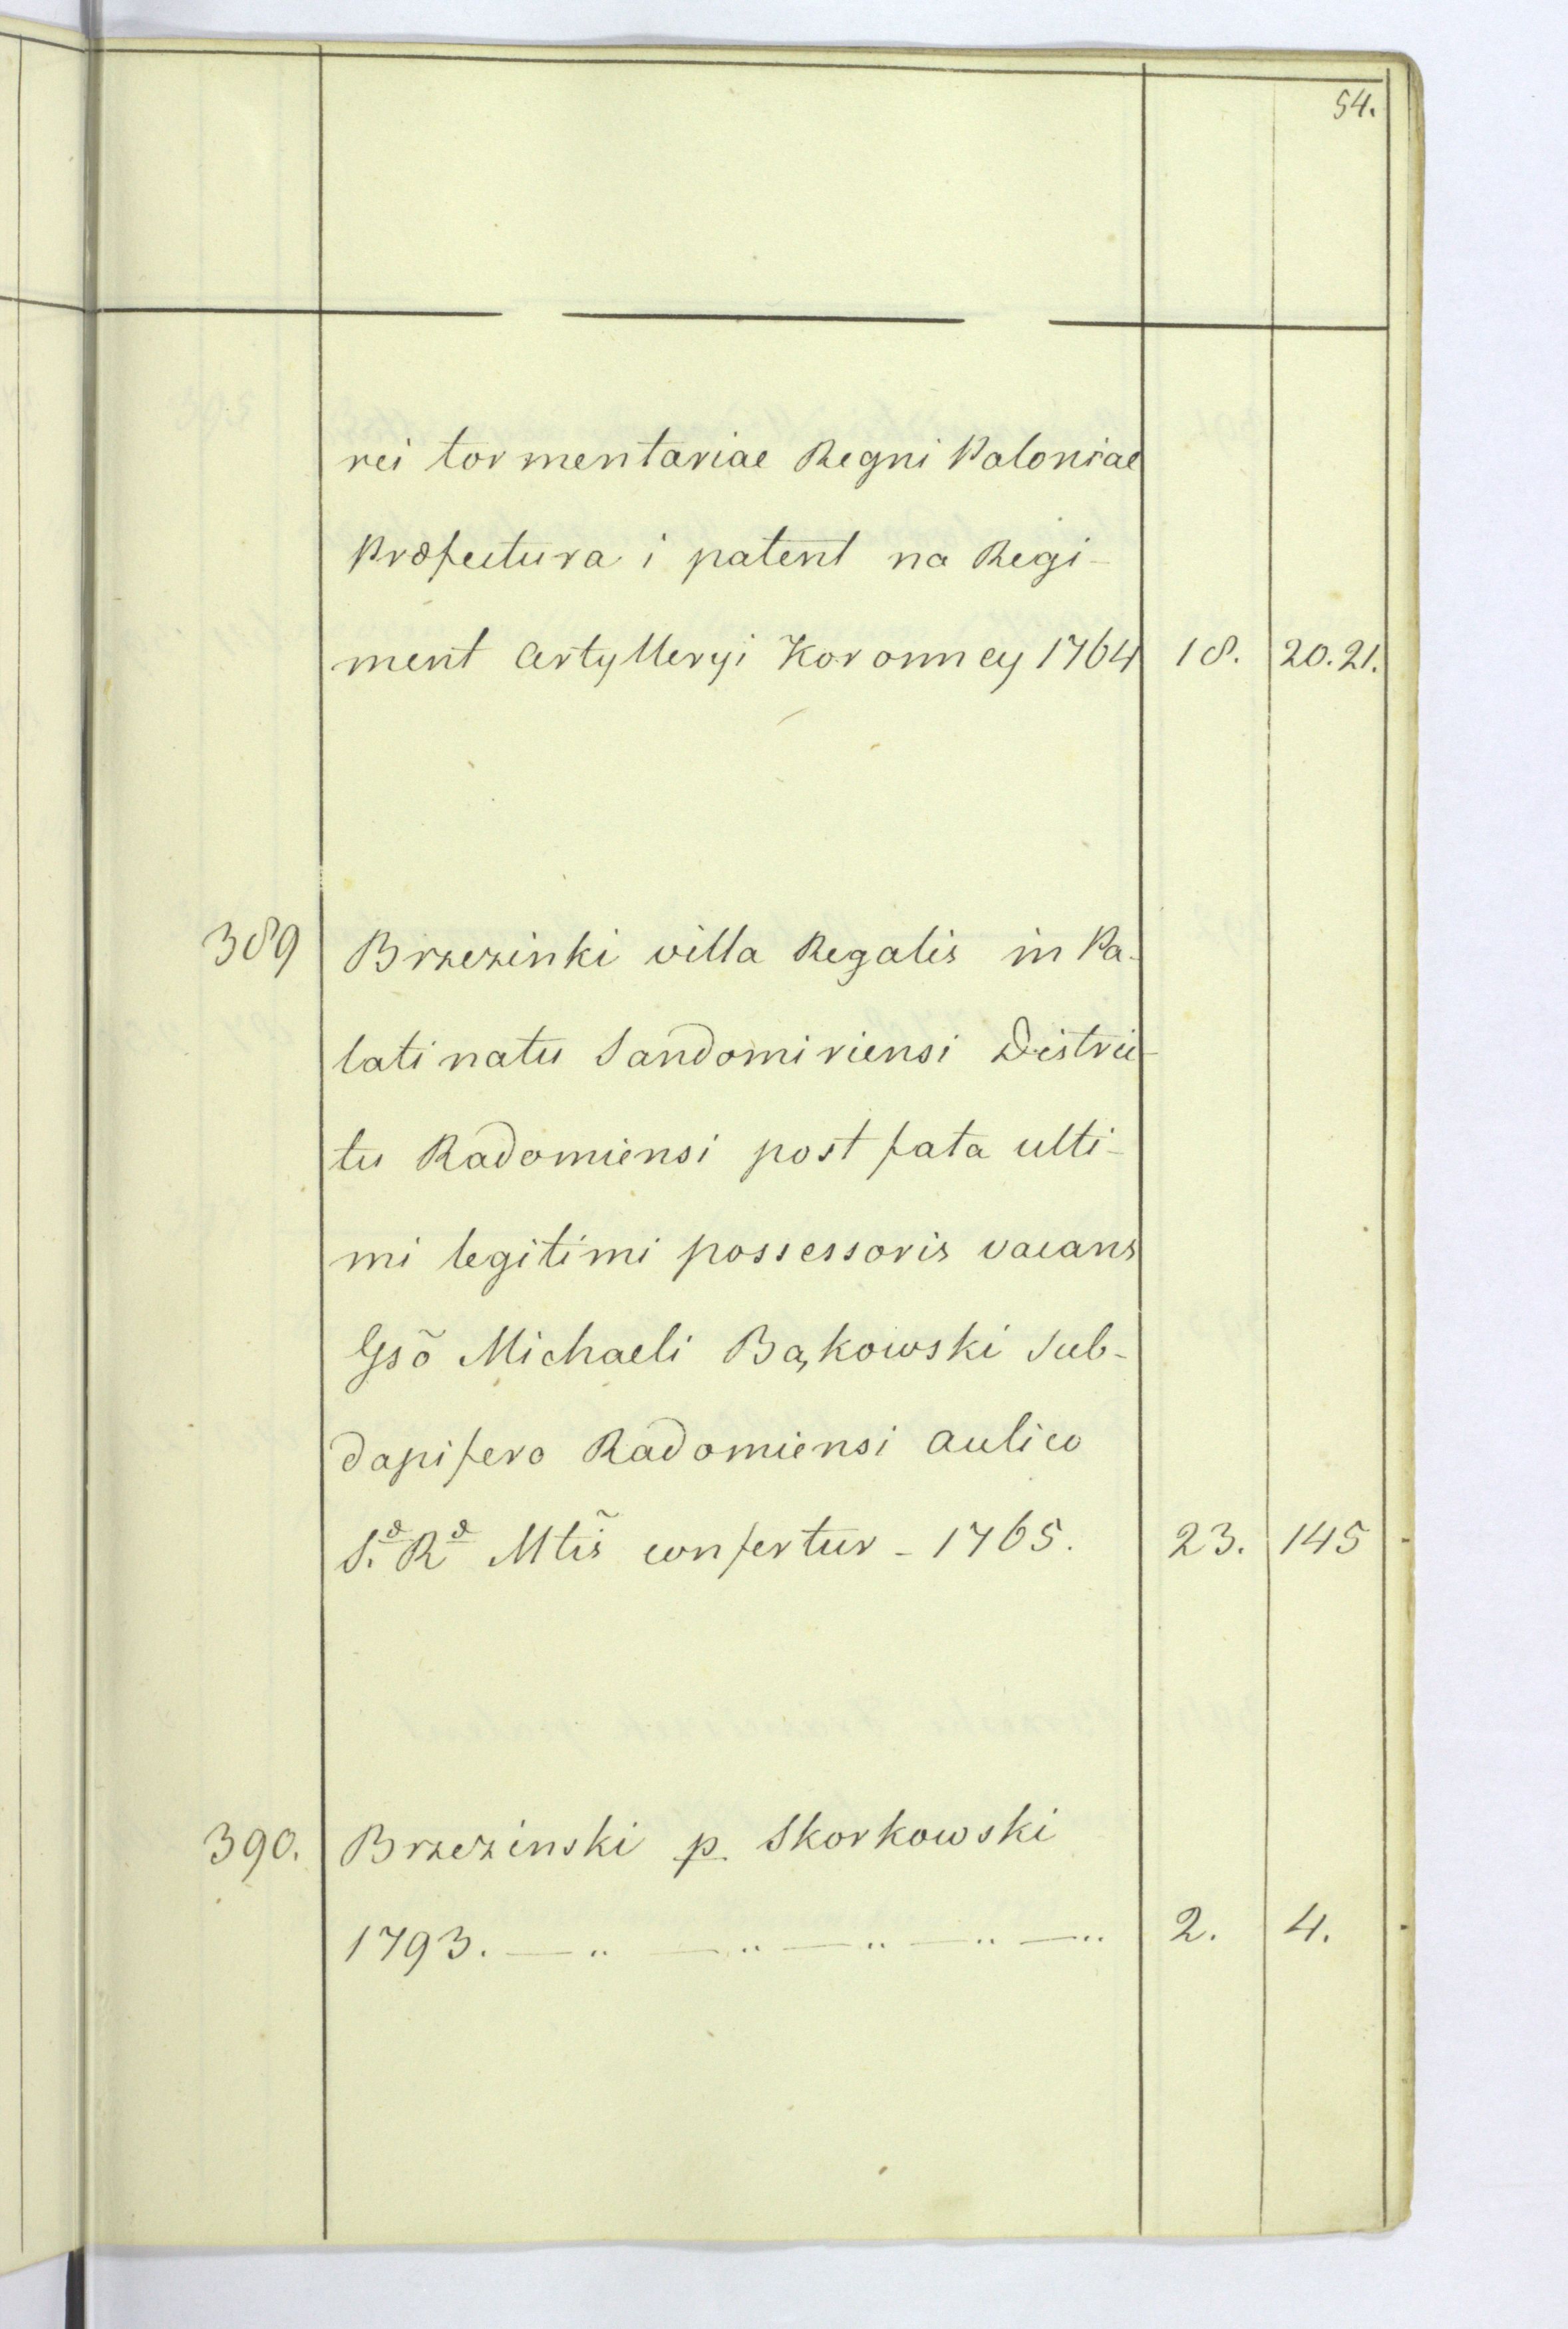 54.
rei tormentariae Regni Poloniae
Præfectura i patent na Regi-
ment Artylleryi Koronney 1764 18. 20. 21.
389 Brzezinki villa Regalis in Pa-
latinatu Sandomiriensi Distric-
tu Radomiensi post fata ulti-
mi legitimi possessoris vacans
Gsõ Michaeli Bąkowski Sub-
dapifero Radomiensi aulico
S. R Mtis̃ confertur - 1765. 23. 145
390. Brzezinski p. Skorkowski
1793. — „ — „ — „ — „ — „ 2. 4.